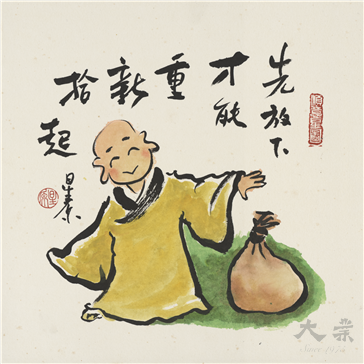 先放下
才能
重
新
拾起